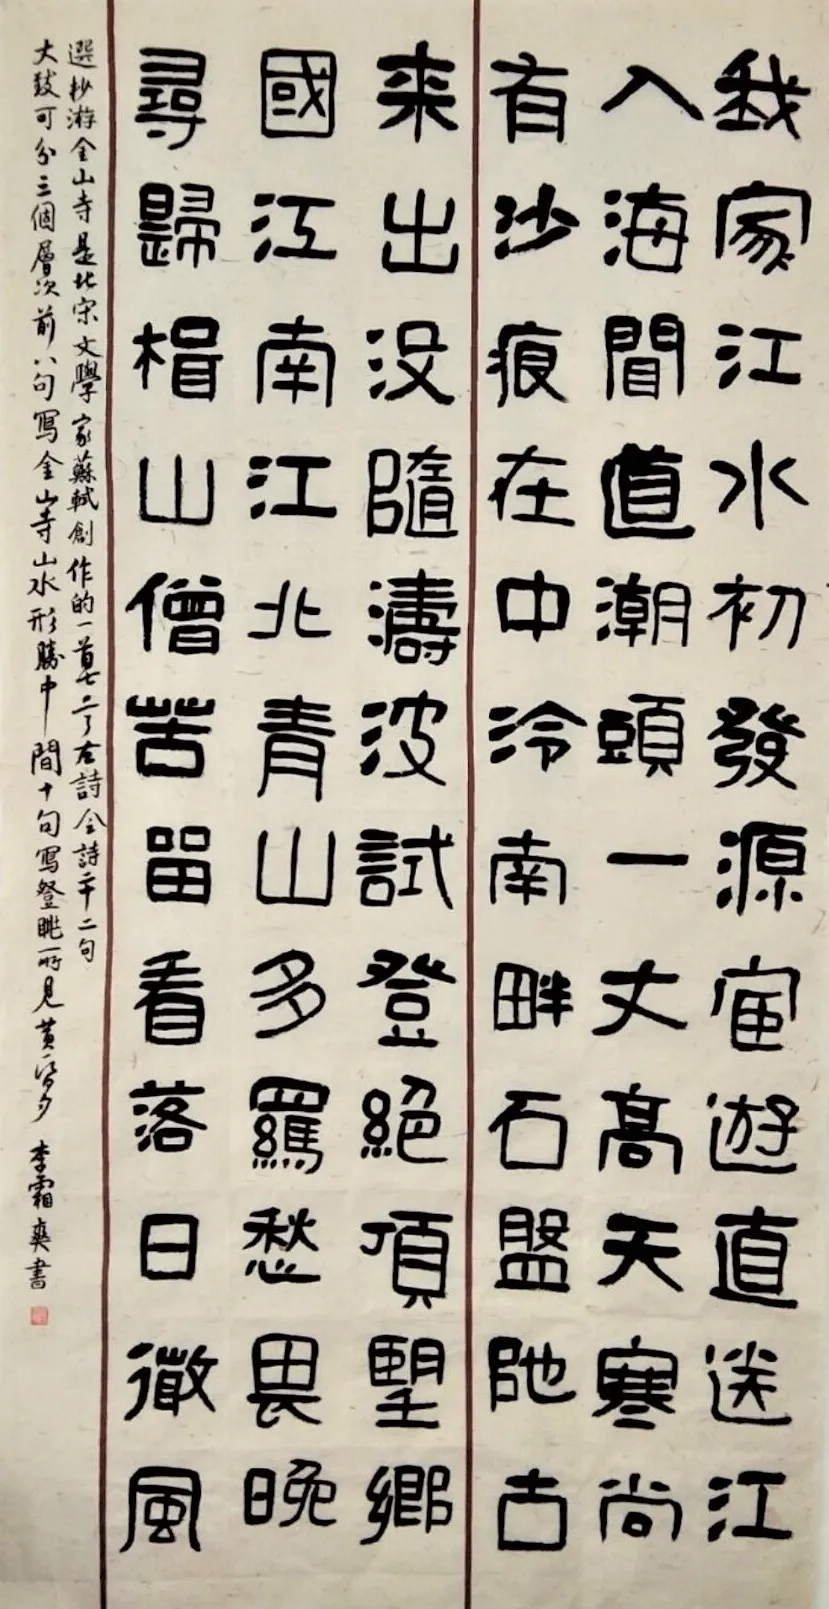 我家江水初發源宦遊直送江
入海聞道潮頭一丈高天寒尚
有沙痕在中泠南畔石盤陁古
來出没隨濤波試登絕頂望鄉
國江南江北青山多羈愁畏晚
尋歸楫山僧苦留看落日微風
選抄游金山寺是北宋文學家蘇軾創作的一首七言古詩全詩二十二句
大致可分三個層次前八句寫金山寺山水形勝中間十句寫登眺所見黃昏夕
李霜爽書